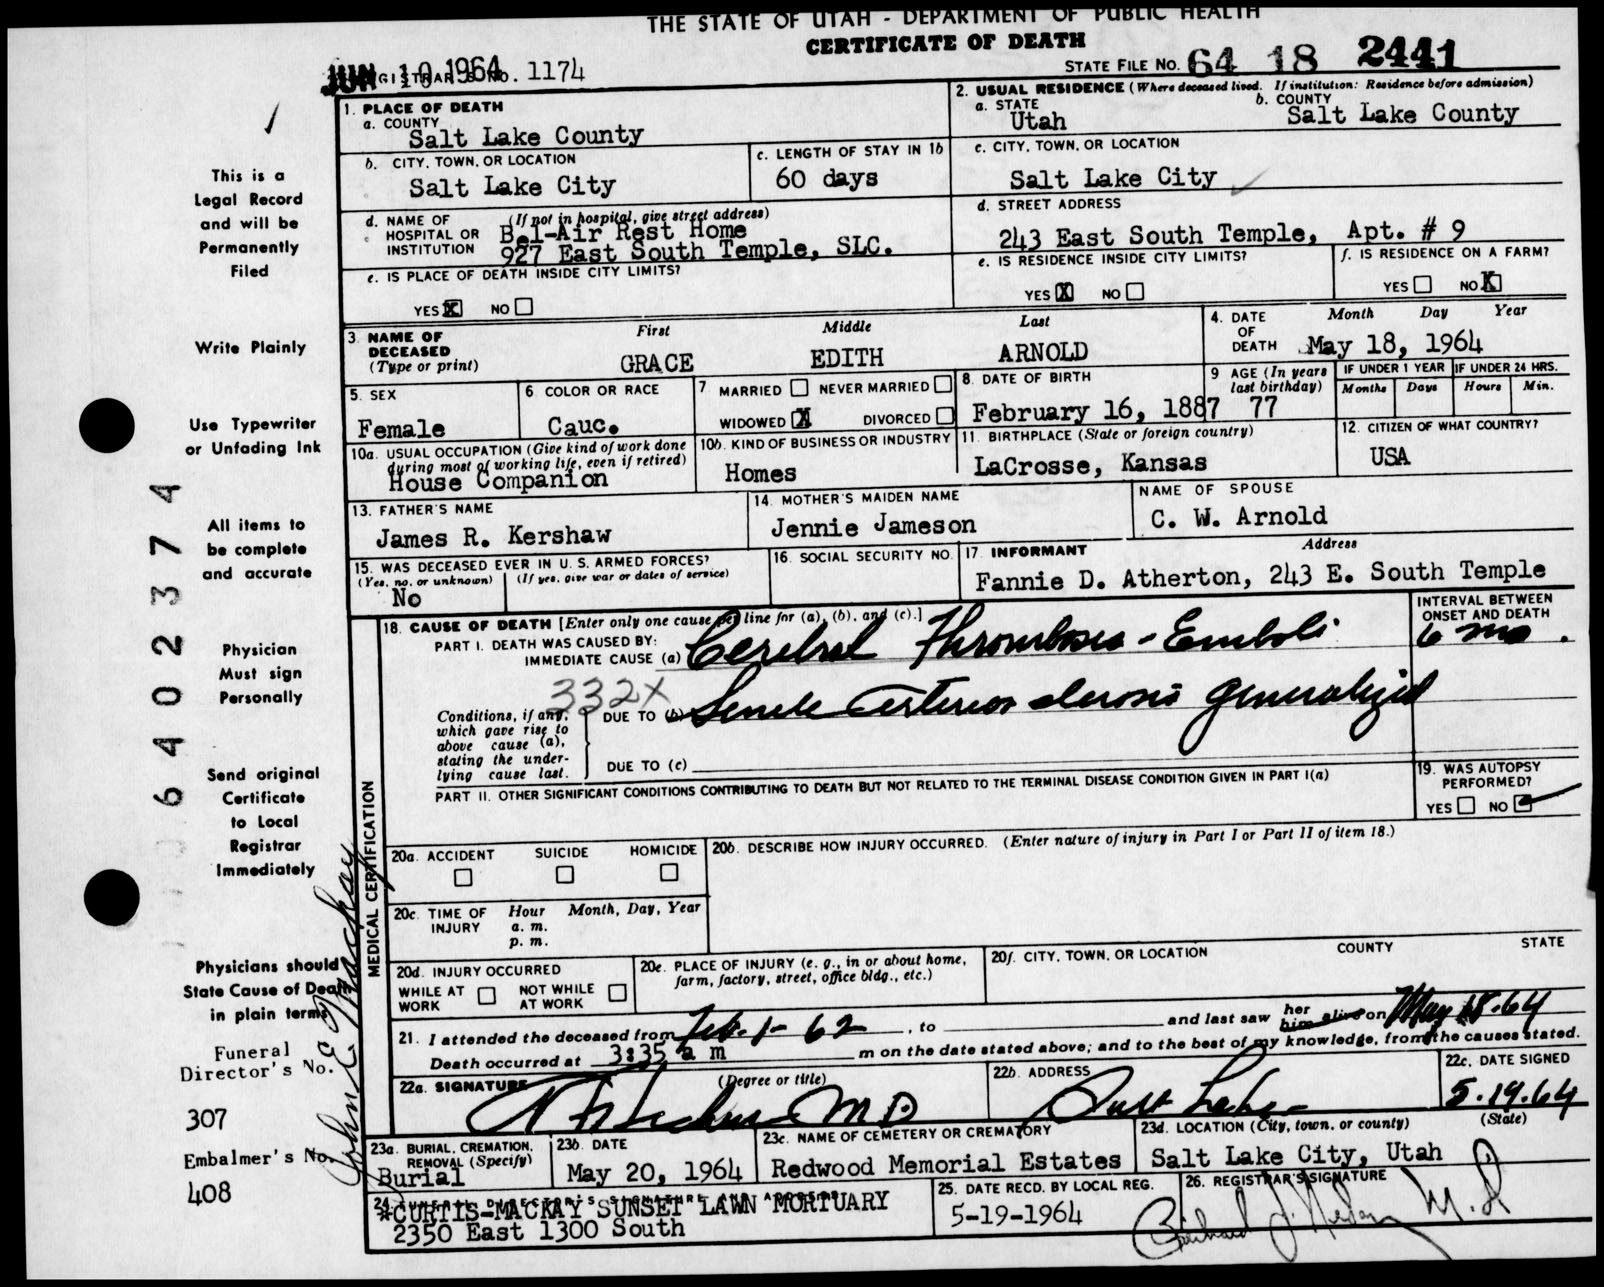 THE STATE OF UTAH - DEPARTMENT OF PUBLIC HEALTH
CERTIFICATE OF DEATH
JUN 10 1964
REGISTRAR'S NO. 1174
STATE FILE NO. 64 18 2441
1. PLACE OF DEATH
a. COUNTY
Salt Lake County
2. USUAL RESIDENCE (Where deceased lived. If institution: Residence before admission)
a. STATE
Utah
b. COUNTY
Salt Lake County
b. CITY, TOWN, OR LOCATION
Salt Lake City
c. LENGTH OF STAY IN 1b
60 days
c. CITY, TOWN, OR LOCATION
Salt Lake City
d. NAME OF HOSPITAL OR INSTITUTION
(If not in hospital, give street address)
Bel-Air Rest Home
927 East South Temple, SLC.
d. STREET ADDRESS
243 East South Temple, Apt. # 9
e. IS PLACE OF DEATH INSIDE CITY LIMITS?
YES X NO
e. IS RESIDENCE INSIDE CITY LIMITS?
YES X NO
f. IS RESIDENCE ON A FARM?
YES NO X
3. NAME OF DECEASED
(Type or print)
First Middle Last
GRACE EDITH ARNOLD
4. DATE OF DEATH
Month Day Year
May 18, 1964
5. SEX
Female
6. COLOR OR RACE
Cauc.
7. MARRIED NEVER MARRIED
WIDOWED X DIVORCED
8. DATE OF BIRTH
February 16, 1887
9 AGE (In years last birthday)
77
IF UNDER 1 YEAR
Months Days
IF UNDER 24 HRS.
Hours Min.
10a. USUAL OCCUPATION (Give kind of work done during most of working life, even if retired)
House Companion
10b. KIND OF BUSINESS OR INDUSTRY
Homes
11. BIRTHPLACE (State or foreign country)
LaCrosse, Kansas
12. CITIZEN OF WHAT COUNTRY?
USA
13. FATHER'S NAME
James R. Kershaw
14. MOTHER'S MAIDEN NAME
Jennie Jameson
NAME OF SPOUSE
C. W. Arnold
15. WAS DECEASED EVER IN U. S. ARMED FORCES?
(Yes, no, or unknown) (If yes, give war or dates of service)
No
16. SOCIAL SECURITY NO.
17. INFORMANT Address
Fannie D. Atherton, 243 E. South Temple
18. CAUSE OF DEATH [Enter only one cause per line for (a), (b), and (c).]
PART I. DEATH WAS CAUSED BY:
IMMEDIATE CAUSE (a) Cerebral Thrombosis - Emboli
INTERVAL BETWEEN ONSET AND DEATH
6 mo.
332X
Conditions, if any, which gave rise to above cause (a), stating the underlying cause last.
DUE TO (b) Senile Arteriosclerosis generalized
DUE TO (c)
PART II. OTHER SIGNIFICANT CONDITIONS CONTRIBUTING TO DEATH BUT NOT RELATED TO THE TERMINAL DISEASE CONDITION GIVEN IN PART I(a)
19. WAS AUTOPSY PERFORMED?
YES NO
MEDICAL CERTIFICATION
20a. ACCIDENT SUICIDE HOMICIDE
20b. DESCRIBE HOW INJURY OCCURRED. (Enter nature of injury in Part I or Part II of item 18.)
20c. TIME OF INJURY
Hour Month, Day, Year
a. m.
p. m.
20d. INJURY OCCURRED
WHILE AT WORK NOT WHILE AT WORK
20e. PLACE OF INJURY (e. g., in or about home, farm, factory, street, office bldg., etc.)
20f. CITY, TOWN, OR LOCATION COUNTY STATE
21. I attended the deceased from Feb. 1-62, to and last saw her him alive on May 18-64
Death occurred at 3:35 a m m on the date stated above; and to the best of my knowledge, from the causes stated.
22a. SIGNATURE (Degree or title)
M D
22b. ADDRESS
Salt Lake
22c. DATE SIGNED
5-19-64
23a. BURIAL, CREMATION, REMOVAL (Specify)
Burial
23b. DATE
May 20, 1964
23c. NAME OF CEMETERY OR CREMATORY
Redwood Memorial Estates
23d. LOCATION (City, town, or county) (State)
Salt Lake City, Utah
24. FUNERAL DIRECTOR'S SIGNATURE AND ADDRESS
*CURTIS-MACKAY SUNSET LAWN MORTUARY
2350 East 1300 South
25. DATE RECD. BY LOCAL REG.
5-19-1964
26. REGISTRAR'S SIGNATURE
M.D
This is a
Legal Record
and will be
Permanently
Filed
Write Plainly
Use Typewriter
or Unfading Ink
All items to
be complete
and accurate
Physician
Must sign
Personally
Send original
Certificate
to Local
Registrar
Immediately
Physicians should
State Cause of Death
in plain terms
Funeral
Director's No.
307
Embalmer's No.
408
John E Mackay
6402374